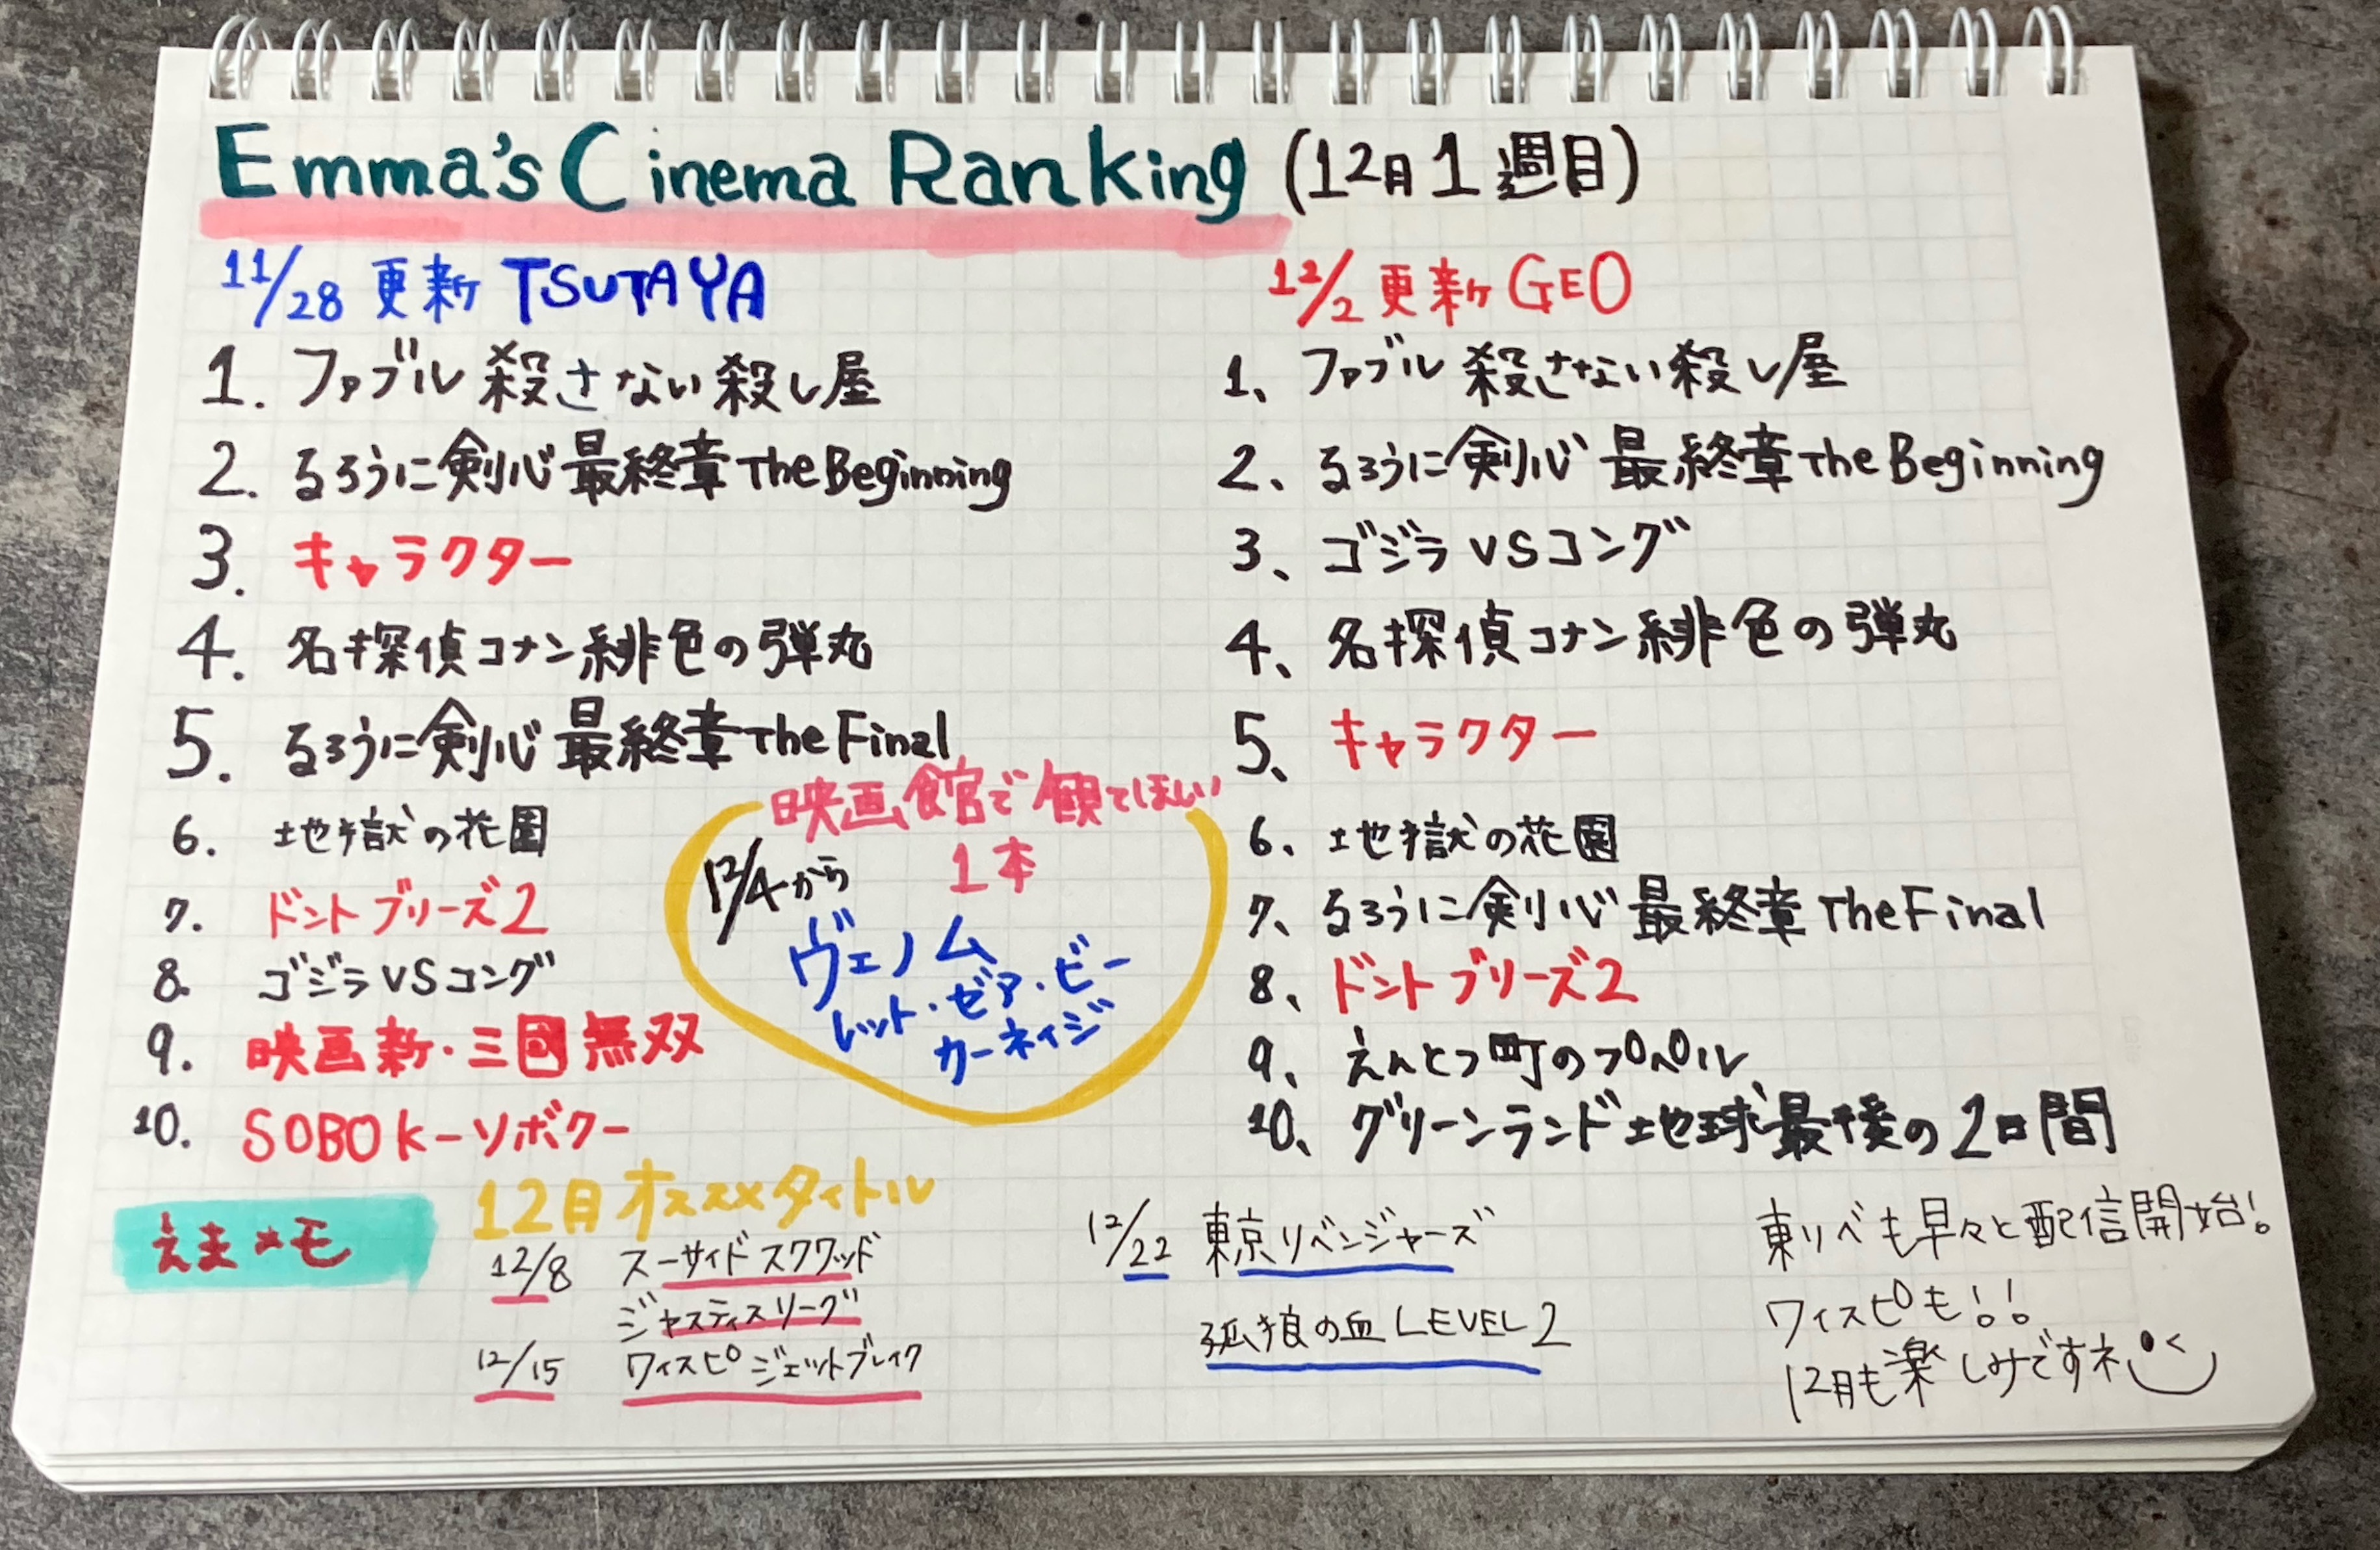 Emma's Cinema Ranking (12月1週目)
11/28 更新 TSUTAYA
1. ファブル 殺さない殺し屋
2. るろうに剣心 最終章 The Beginning
3. キャラクター
4. 名探偵コナン緋色の弾丸
5. るろうに剣心 最終章 The Final
6. 地獄の花園
7. ドント ブリーズ2
8. ゴジラ VS コング
9. 映画 新・三國無双
10. SOBOKーソボクー
映画館で観てほしい
1本
12/4から
ヴェノム
レット・ゼア・ビー
カーネイジ
12/2 更新 GEO
1、ファブル 殺さない殺し屋
2、るろうに剣心 最終章 The Beginning
3、ゴジラ VS コング
4、名探偵コナン緋色の弾丸
5、キャラクター
6、地獄の花園
7、るろうに剣心 最終章 The Final
8、ドント ブリーズ2
9、えんとつ町のプペル
10、グリーンランド 地球最後の2日間
えまメモ
12月オススメタイトル
12/8 スーサイド スクワッド
ジャスティスリーグ
12/15 ワイスピ ジェットブレイク
12/22 東京リベンジャーズ
孤狼の血 LEVEL2
東リベも早々と配信開始!
ワイスピも!!
12月も楽しみですネ